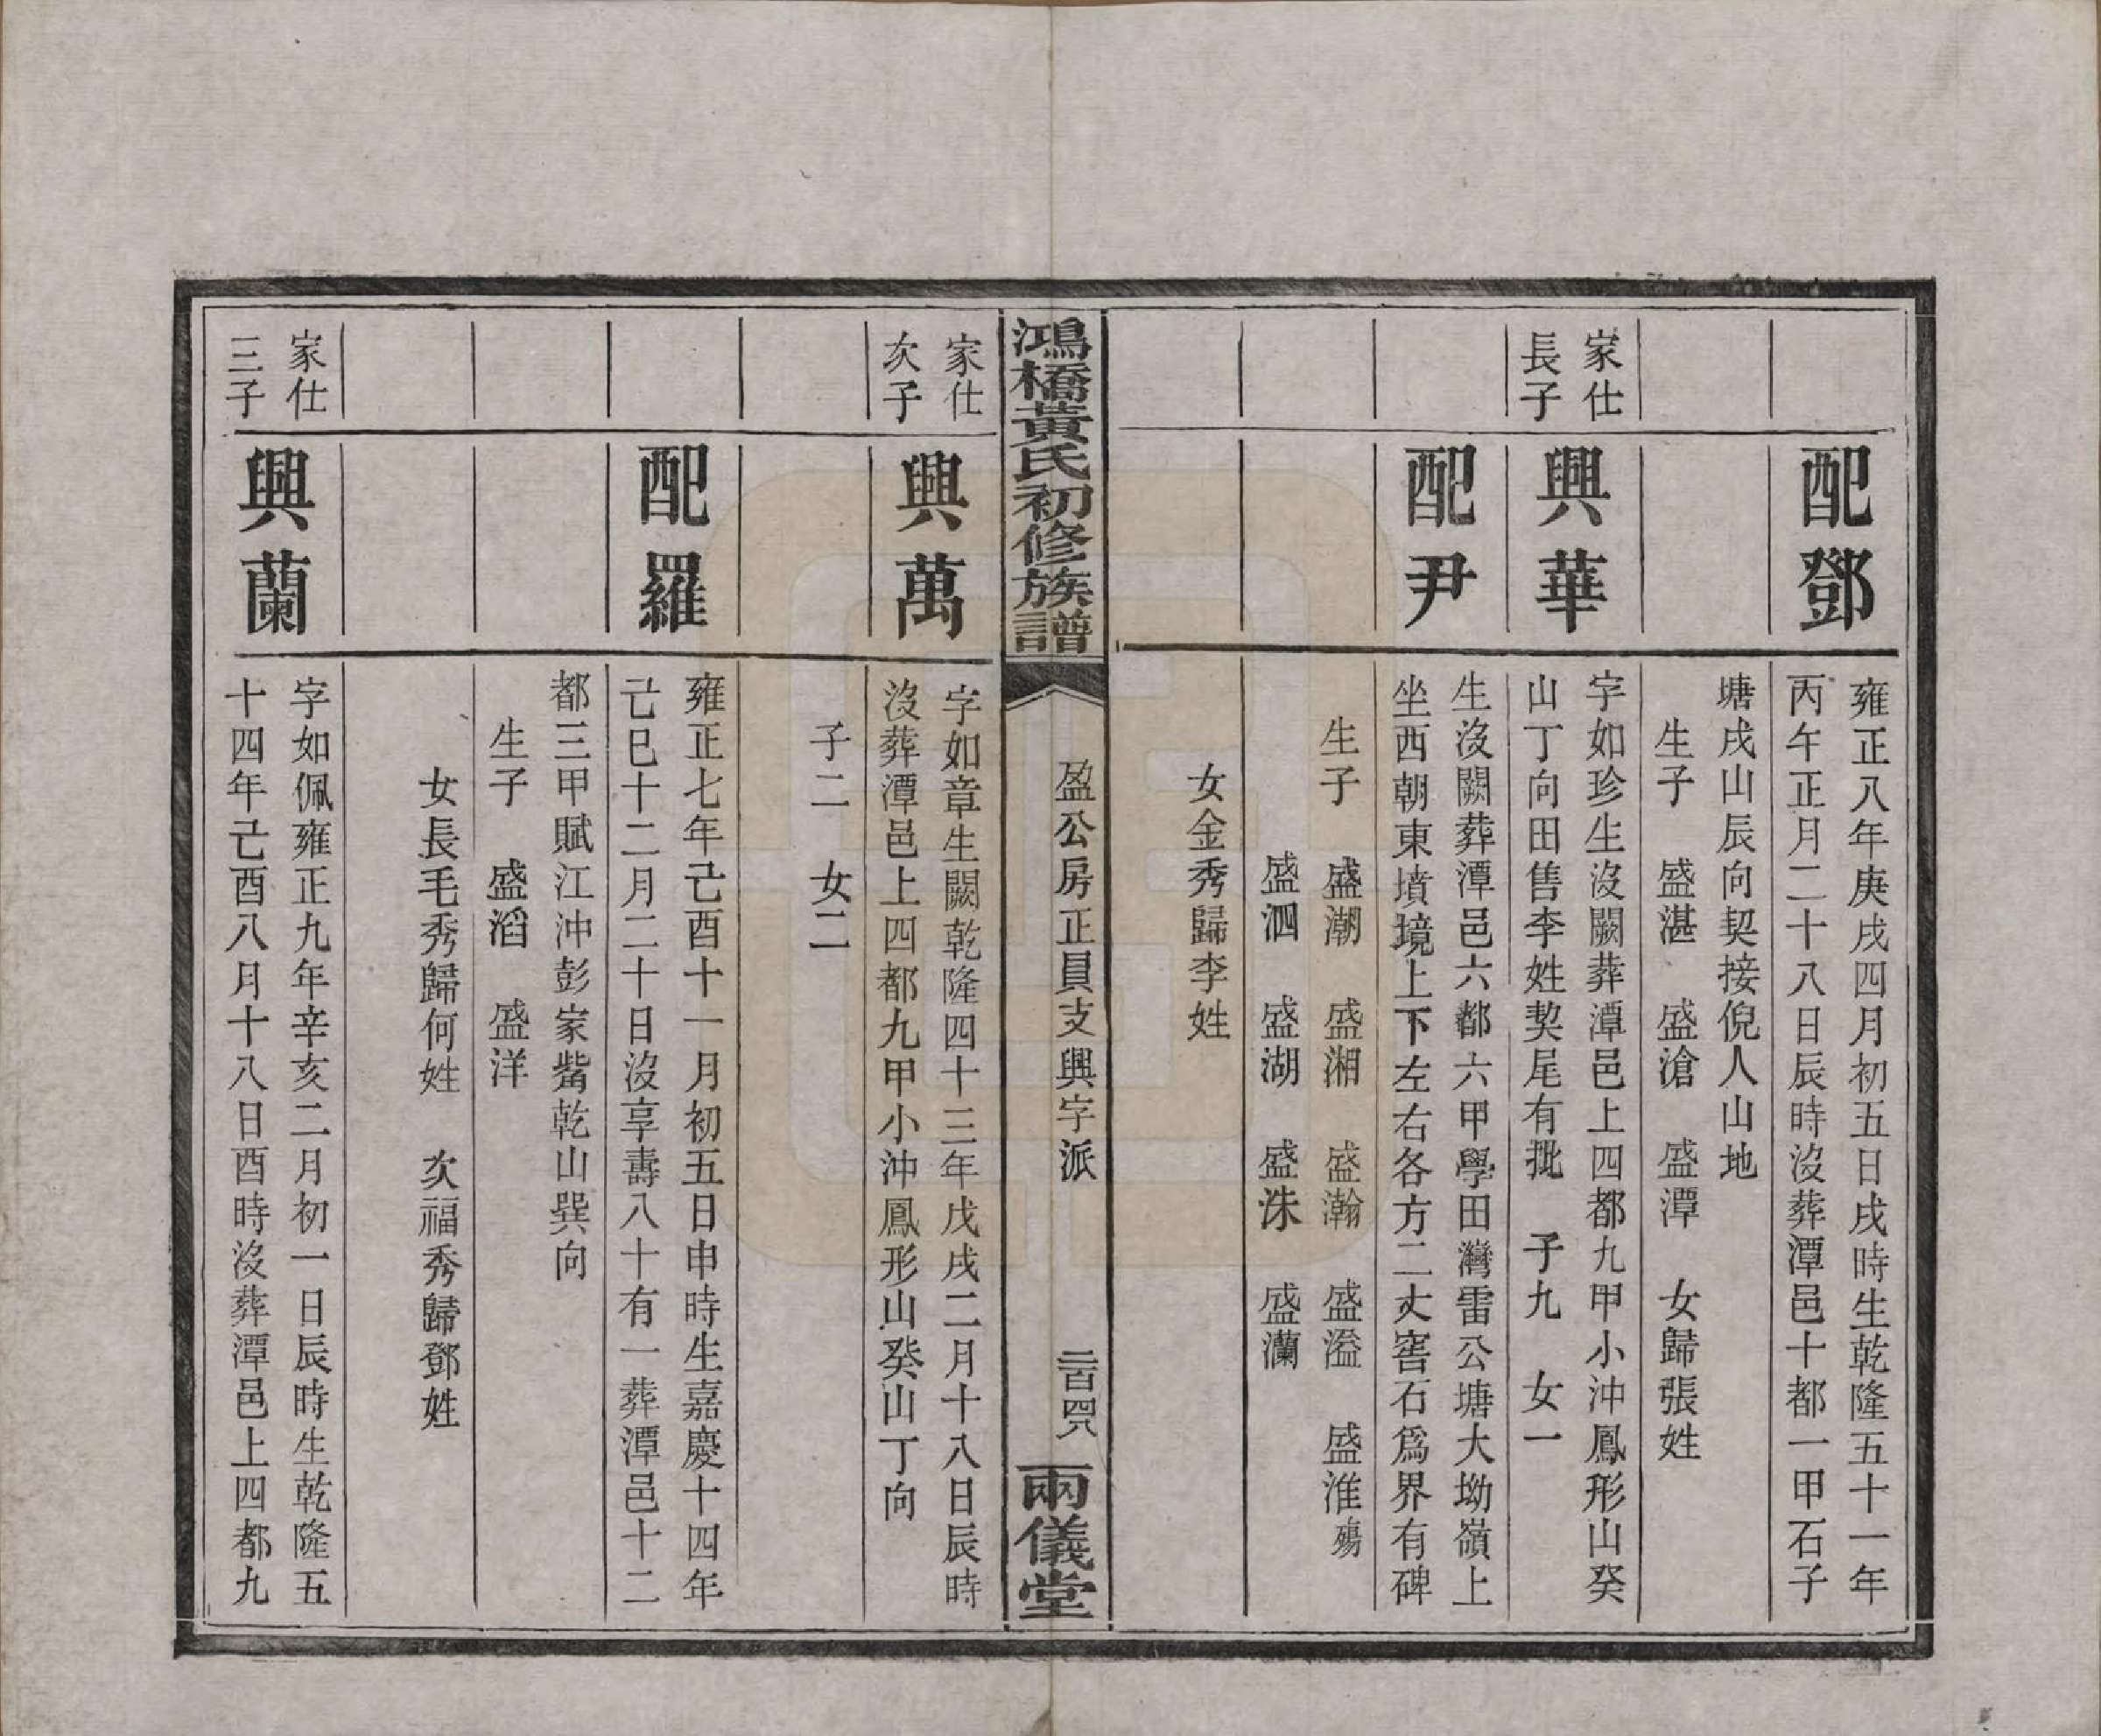 配鄧
雍正八年庚戌四月初五日戌時生乾隆五十一年
丙午正月二十八日辰時沒葬潭邑十都一甲石子
塘戌山辰向契接倪人山地
生子　盛湛　盛滄　盛潭　女歸張姓
家仕
長子
興華
字如珍生沒闕葬潭邑上四都九甲小沖鳳形山癸
山丁向田售李姓契尾有批　子九　女一
配尹
生沒闕葬潭邑六都六甲學田灣雷公塘大坳嶺上
坐西朝東墳境上下左右各方二丈窖石爲界有碑
生子　盛潮　盛湘　盛瀚　盛溢　盛淮殤
盛泗　盛湖　盛洙　盛瀾
女金秀歸李姓
鴻橋黃氏初修族譜
盈公房正員支興字派
二百四八
兩儀堂
家仕
次子
興萬
字如章生闕乾隆四十三年戊戌二月十八日辰時
沒葬潭邑上四都九甲小沖鳳形山癸山丁向
子二　女二
配羅
雍正七年己酉十一月初五日申時生嘉慶十四年
己巳十二月二十日沒享壽八十有一葬潭邑十二
都三甲賦江沖彭家觜乾山巽向
生子　盛滔　盛洋
女長毛秀歸何姓　次福秀歸鄧姓
家仕
三子
興蘭
字如佩雍正九年辛亥二月初一日辰時生乾隆五
十四年己酉八月十八日酉時沒葬潭邑上四都九